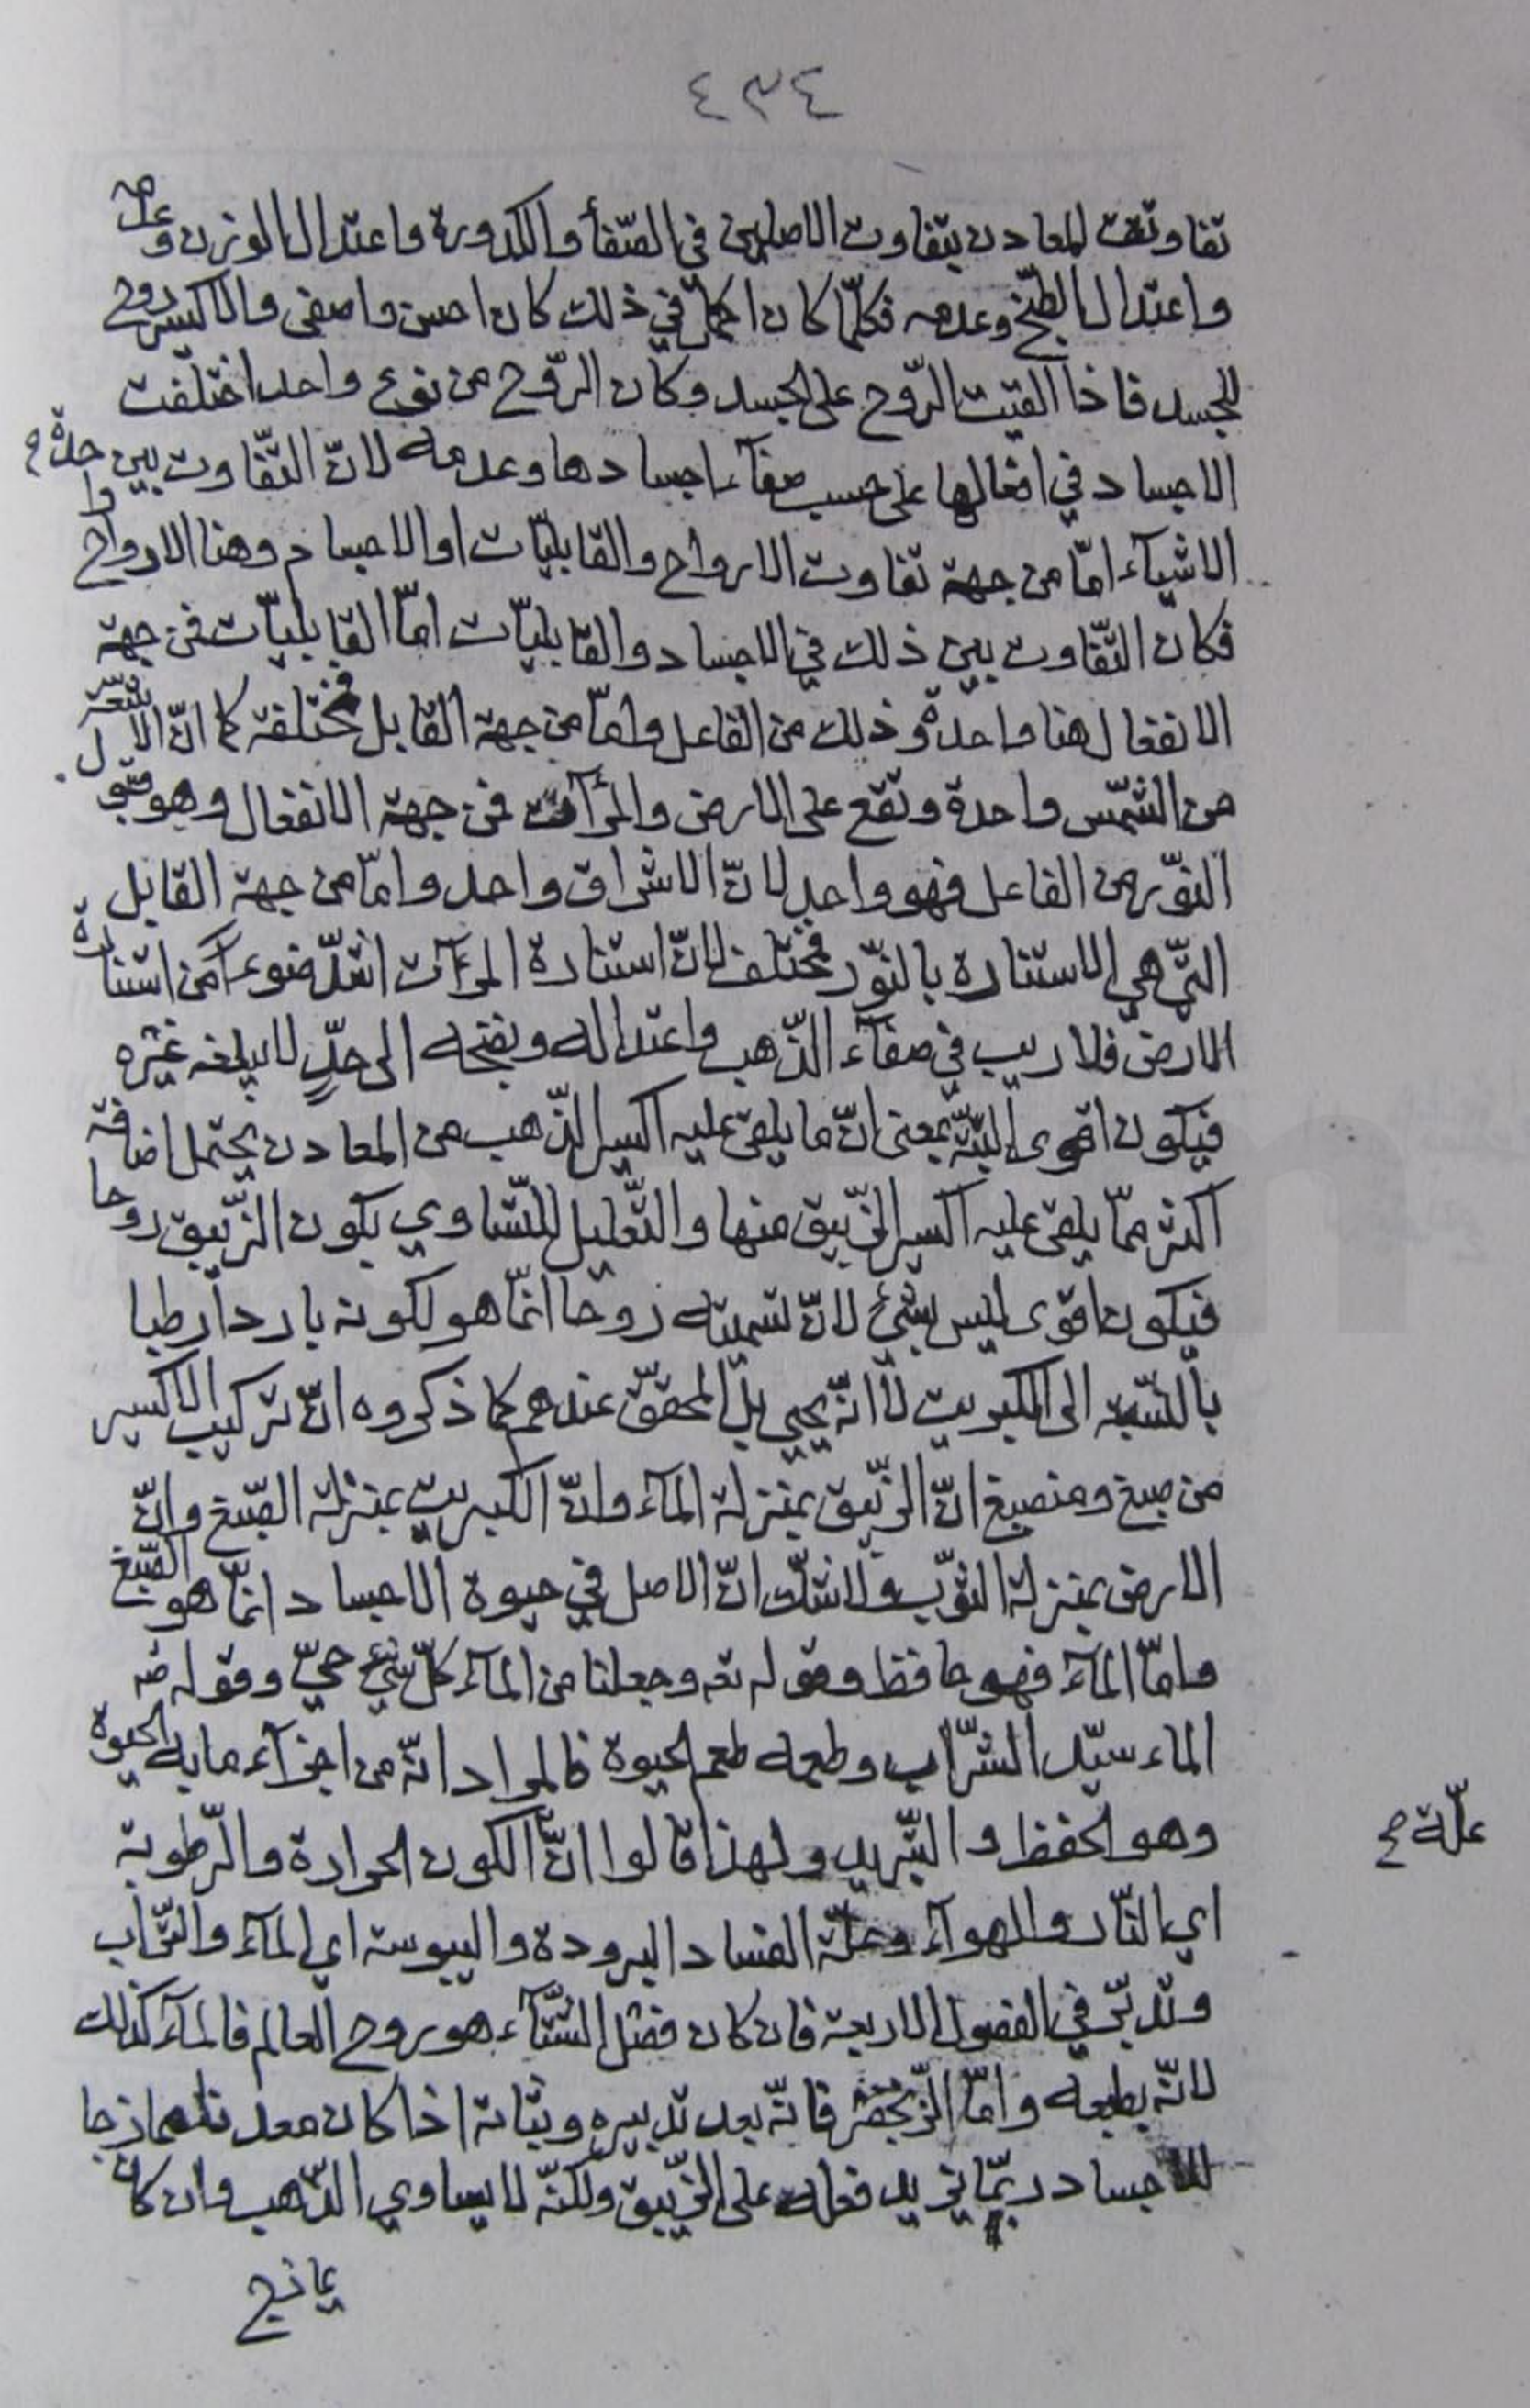 ٤٣٤
تفاوتت المعادن بتفاوت الاصلين في الصّفأ والكدورة واعتدال الوزن وعدمه
واعتدال الطّبخ وعدمه فكلّما كان اكمل في ذلك كان احسن واصفى والاكسير روح
للجسد فاذا القيت الرّوح على الجسد وكان الرّوح من نوع واحد اختلفت
الاجساد في افعالها على حسب صفآء اجسادها وعدمه لانّ التّفاوت بين
الاشيآء امّا من جهة تفاوت الارواح والقابليّات او الاجسام وهنا الارواح واحدة
فكان التّفاوت بين ذلك في الاجساد والقابليّات امّا القابليّات فمن جهة
الانفعال هنا واحدة وذلك من الفاعل وامّا من جهة القابل فمختلفة كما انّ الاشعّة
من الشّمس واحدة وتقع على الارض والمرآت فمن جهة الانفعال وهو قبول
النّور من الفاعل فهو واحد لانّ الاشراق واحد وامّا من جهة القابل
الّتي هي الاستنارة بالنّور فمختلف لانّ استنارة المرءات اشدّ ضوءا من استنارة
الارض فلا ريب في صفآء الذّهب واعتداله ونضجه الى حدّ لا يبلغه غيره
فيكون اقوى البتّة بمعنى انّ ما يلقى عليه اكسير الذّهب من المعادن يحتمل اضافة
اكثر ممّا يلقى عليه اكسير الزّيبق منها والتّعليل للتّساوي بكون الزّيبق روحا
فيكون اقوى ليس بشيء لانّ تسميته روحا انّما هو لكونه باردا رطبا
بالنّسبة الى الكبريت لا انّه يحيي بل المحقّق عندهم كما ذكروه انّ تركيب الاكسير
من صبغ ومنصبغ انّ الزّيبق بمنزلة المآء وانّ الكبريت بمنزلة الصّبغ وانّ
الارض بمنزلة الثّوب ولا شكّ انّ الاصل في حيوة الاجساد انّما هو الصّبغ
وامّا المآء فهو حافظ وقوله تعه وجعلنا من المآء كلّ شيء حيّ وقوله
الماء سيّد الشّراب وطعمه طعم الحيوة فالمراد انّه من اجزآء ما به الحيوة
وهو الحفظ والتّبريد ولهذا قالوا انّ الكون الحرارة والرّطوبة
علّة صح
اي النّار والهوآء وعلّة الفساد البرودة واليبوسة اي المآء والتّراب
وتدبّر في الفصول الاربعة فان كان فصل الشّتآء هو روح العالم فالمآء كذلك
لانّه بطبعه وامّا الزّنجفر فانّه بعد تدبيره وثباته اذا كان معدنا ممازجا
للاجساد ربّما يزيد فعله على الزّيبق ولكنّه لا يساوي الذّهب وان كان
يمازج